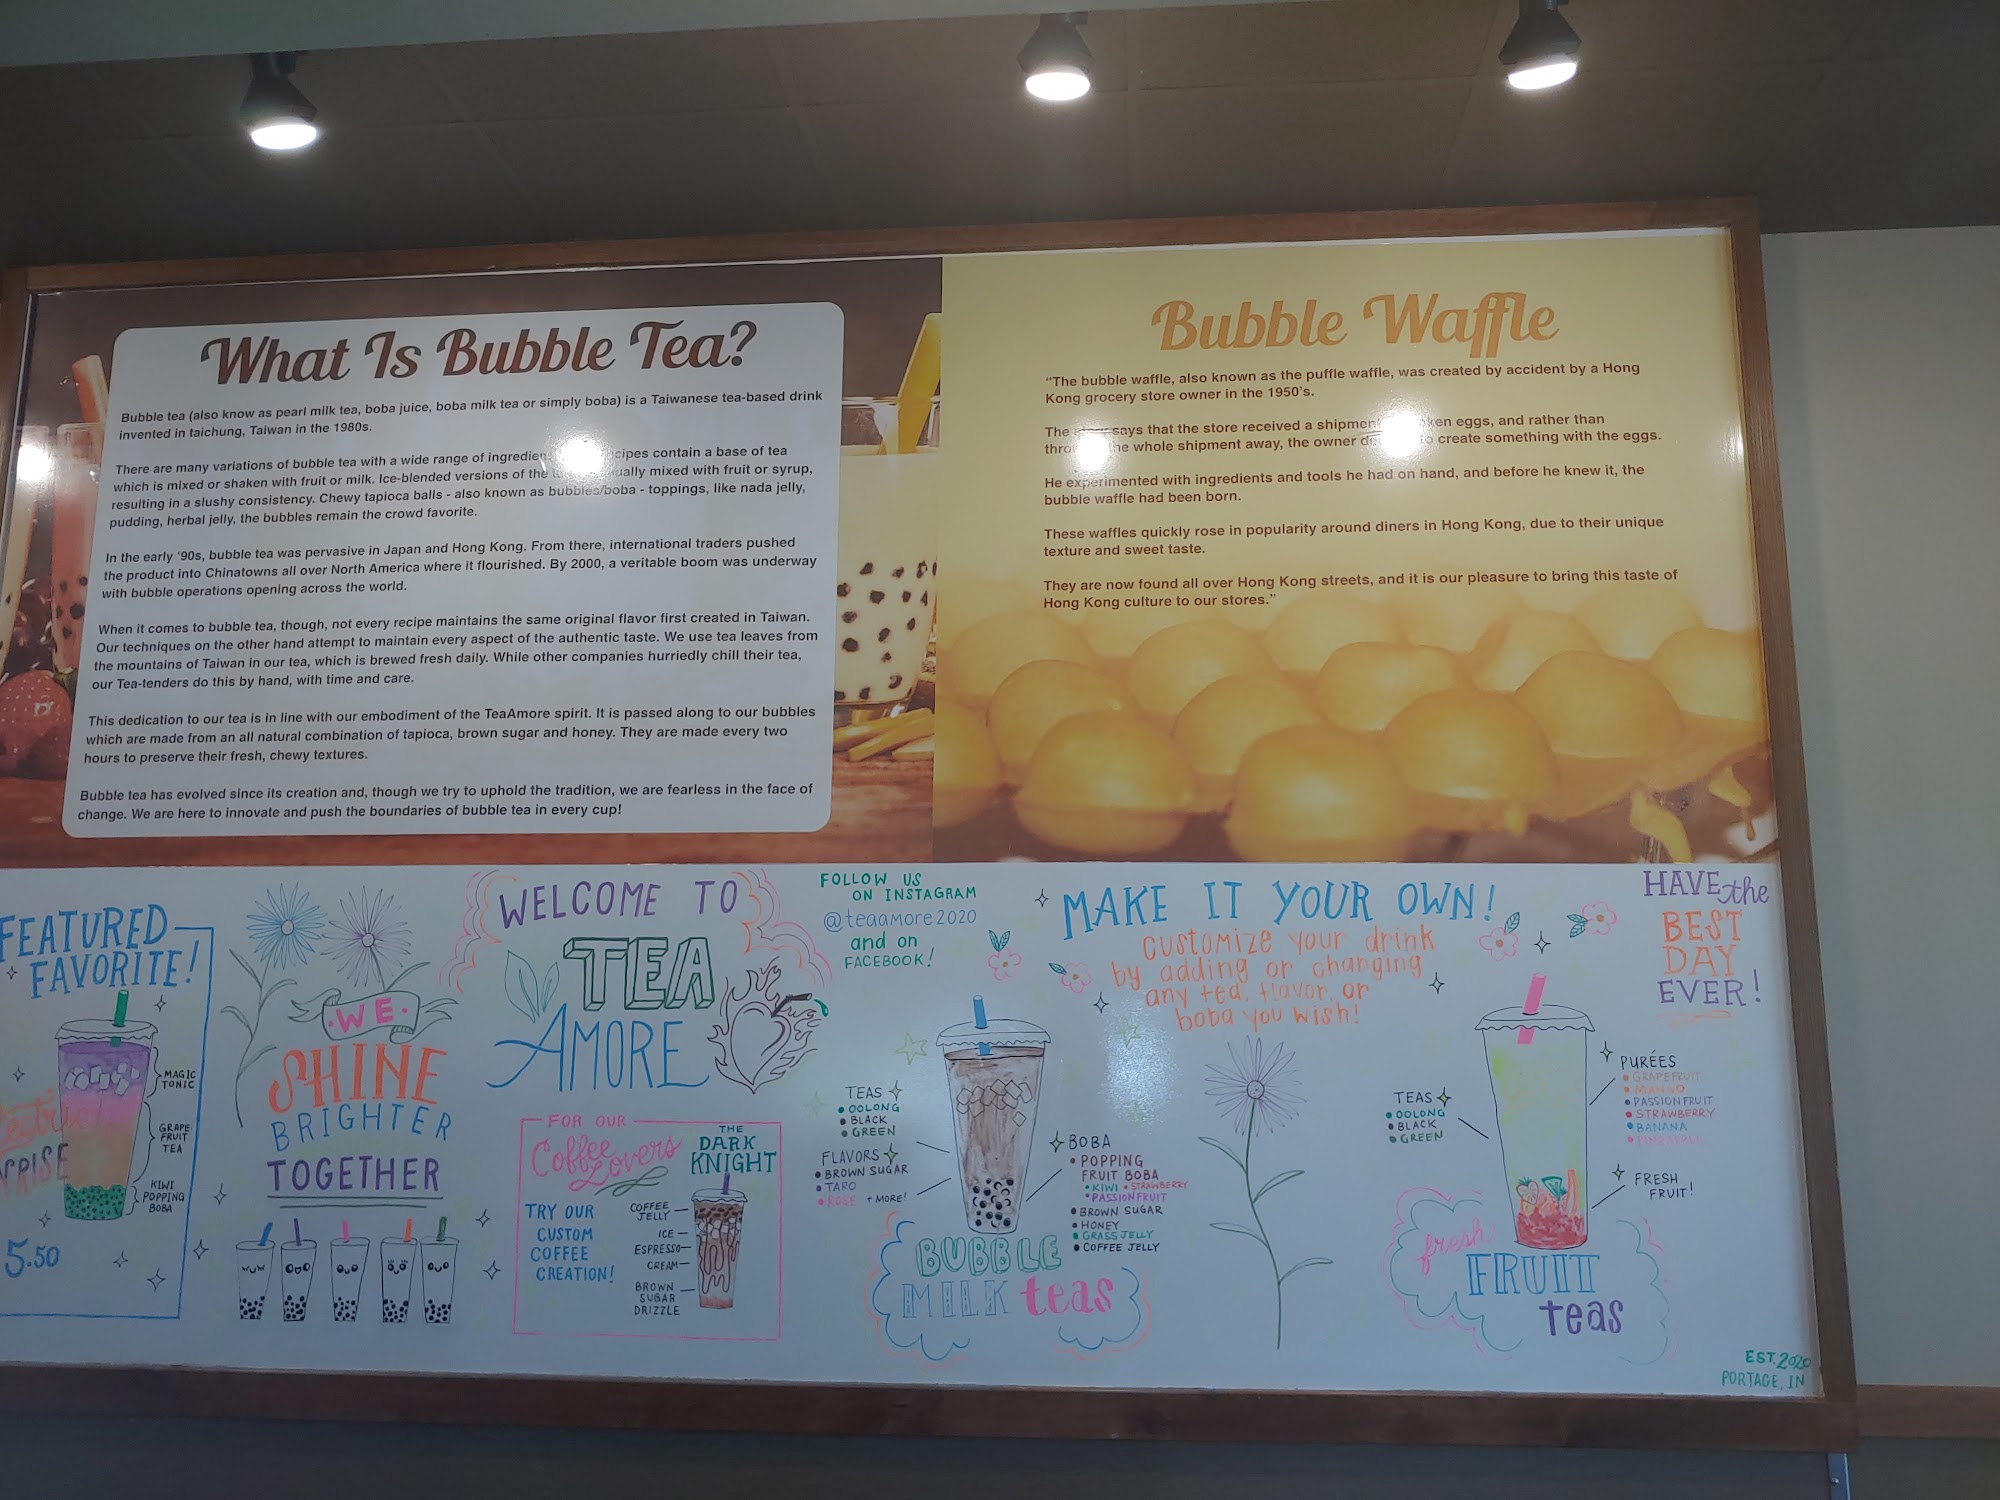 What Is Bubble Tea?
Bubble tea (also know as pearl milk tea, boba juice, boba milk tea or simply boba) is a Taiwanese tea-based drink
invented in taichung, Taiwan in the 1980s.
There are many variations of bubble tea with a wide range of contain a base of tea
which is mixed or shaken with fruit or milk. Ice-blended versions of the mixed with fruit or syrup,
resulting in a slushy consistency. Chewy tapioca balls - also known as bubbles/boba - toppings, like nada jelly,
pudding, herbal jelly, the bubbles remain the crowd favorite.
In the early '90s, bubble tea was pervasive in Japan and Hong Kong. From there, international traders pushed
the product into Chinatowns all over North America where it flourished. By 2000, a veritable boom was underway
with bubble operations opening across the world.
When it comes to bubble tea, though, not every recipe maintains the same original flavor first created in Taiwan.
Our techniques on the other hand attempt to maintain every aspect of the authentic taste. We use tea leaves from
the mountains of Taiwan in our tea, which is brewed fresh daily. While other companies hurriedly chill their tea,
our Tea-tenders do this by hand, with time and care.
This dedication to our tea is in line with our embodiment of the TeaAmore spirit. It is passed along to our bubbles
which are made from an all natural combination of tapioca, brown sugar and honey. They are made every two
hours to preserve their fresh, chewy textures.
Bubble tea has evolved since its creation and, though we try to uphold the tradition, we are fearless in the face of
change. We are here to innovate and push the boundaries of bubble tea in every cup!
Bubble Waffle
"The bubble waffle, also known as the puffle waffle, was created by accident by a Hong
Kong grocery store owner in the 1950's.
The says that the store received a shipment eggs, and rather than
whole shipment away, the owner create something with the eggs.
He experimented with ingredients and tools he had on hand, and before he knew it, the
bubble waffle had been born.
These waffles quickly rose in popularity around diners in Hong Kong, due to their unique
texture and sweet taste.
They are now found all over Hong Kong streets, and it is our pleasure to bring this taste of
Hong Kong culture to our stores."
FEATURED
FAVORITE!
MAGIC
TONIC
GRAPE
FRUIT
TEA
KIWI
POPPING
BOBA
5.50
WE
SHINE
BRIGHTER
TOGETHER
WELCOME TO
TEA
AMORE
FOR OUR
Coffee
Lovers
TRY OUR
CUSTOM
COFFEE
CREATION!
THE
DARK
KNIGHT
COFFEE
JELLY
ICE
ESPRESSO
CREAM
BROWN
SUGAR
DRIZZLE
FOLLOW US
ON INSTAGRAM
@teaamore2020
and on
FACEBOOK!
MAKE IT YOUR OWN!
customize your drink
by adding or changing
any tea, flavor, or
boba you wish!
TEAS
OOLONG
BLACK
GREEN
FLAVORS
BROWN SUGAR
TARO
ROSE + MORE!
BOBA
POPPING
FRUIT BOBA
KIWI • STRAWBERRY
PASSIONFRUIT
BROWN SUGAR
HONEY
GRASS JELLY
COFFEE JELLY
BUBBLE
MILK teas
HAVE the
BEST
DAY
EVER!
TEAS
OOLONG
BLACK
GREEN
PURÉES
GRAPEFRUIT
MANGO
PASSIONFRUIT
STRAWBERRY
BANANA
PINEAPPLE
FRESH
FRUIT!
fresh
FRUIT
teas
EST. 2020
PORTAGE, IN